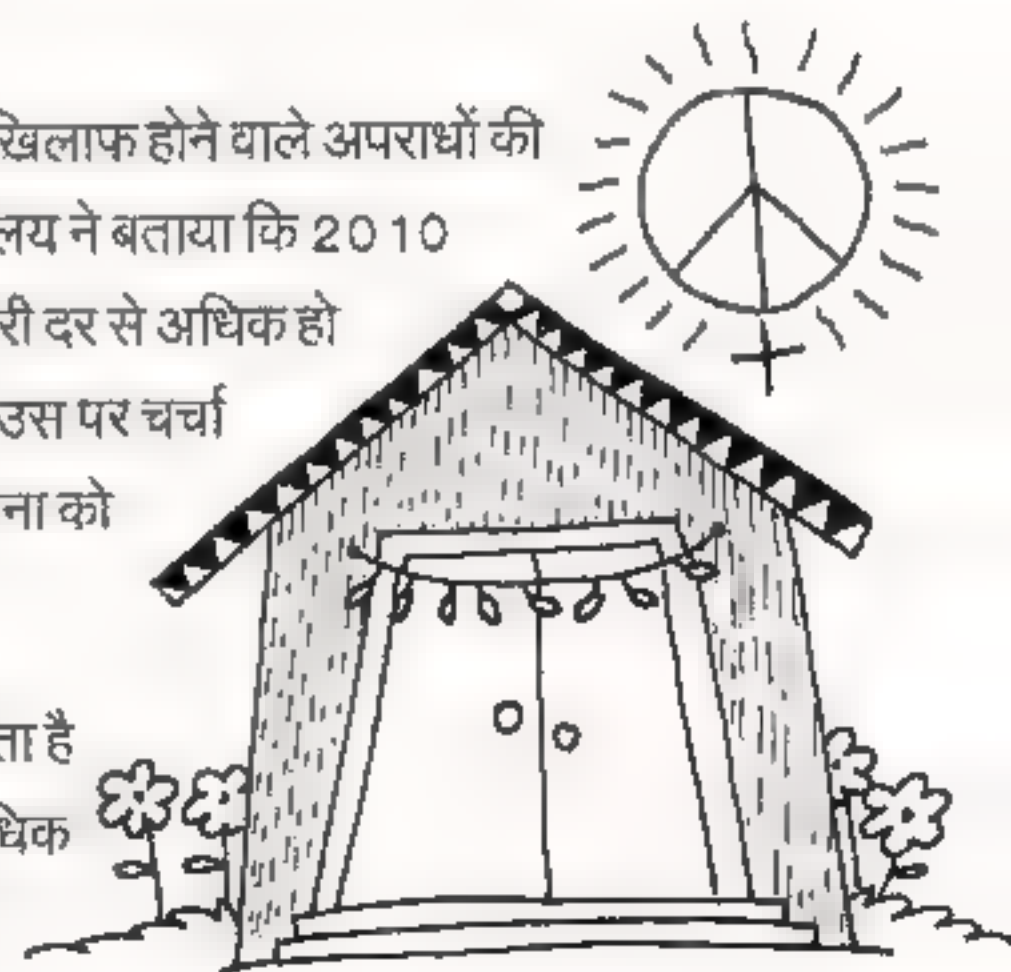 खिलाफ होने वाले अपराधों की
लय ने बताया कि 2010
री दर से अधिक हो
उस पर चर्चा
ना को
ता है
धिक